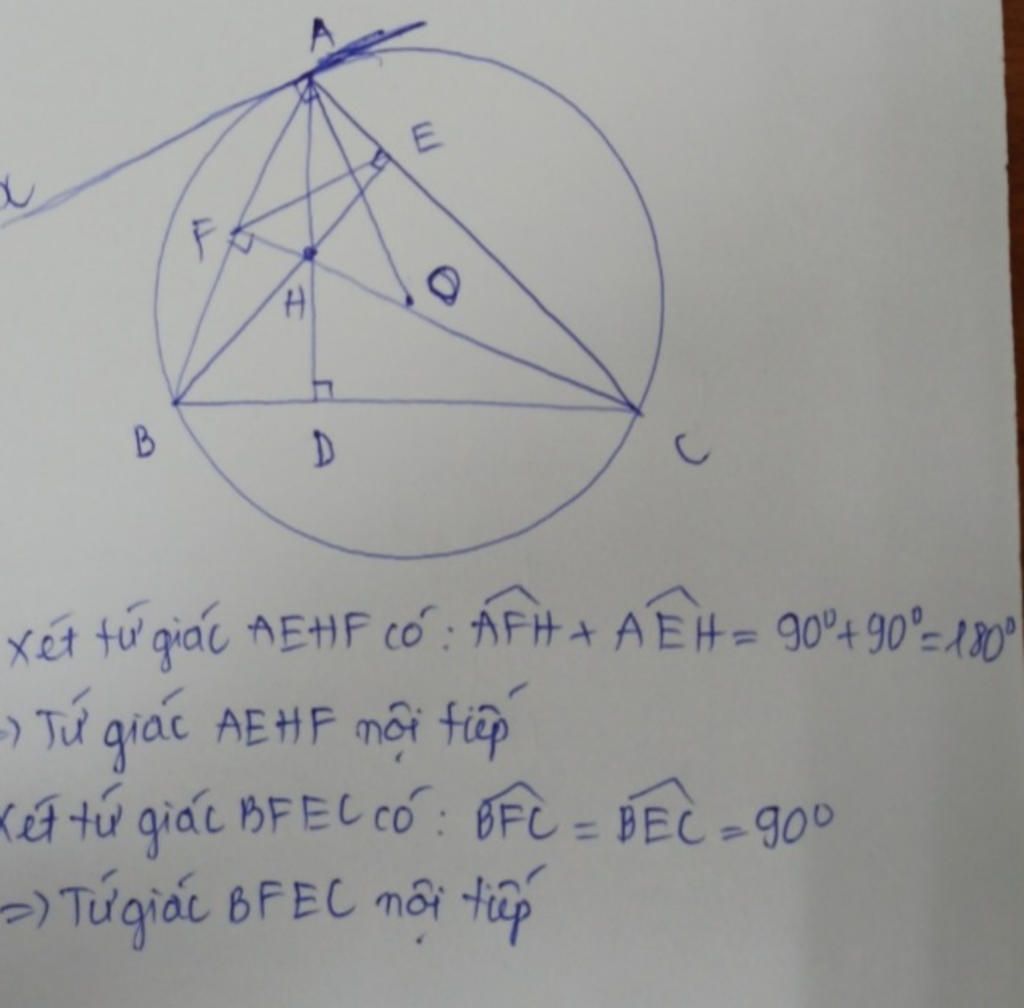 A
E
x
F
H
O
B
D
C
Xét tứ giác AEHF có: AFH + AEH = 90⁰ + 90⁰ = 180⁰
=) Tứ giác AEHF nội tiếp
Xét tứ giác BFEC có: BFC = BEC = 90⁰
=) Tứ giác BFEC nội tiếp